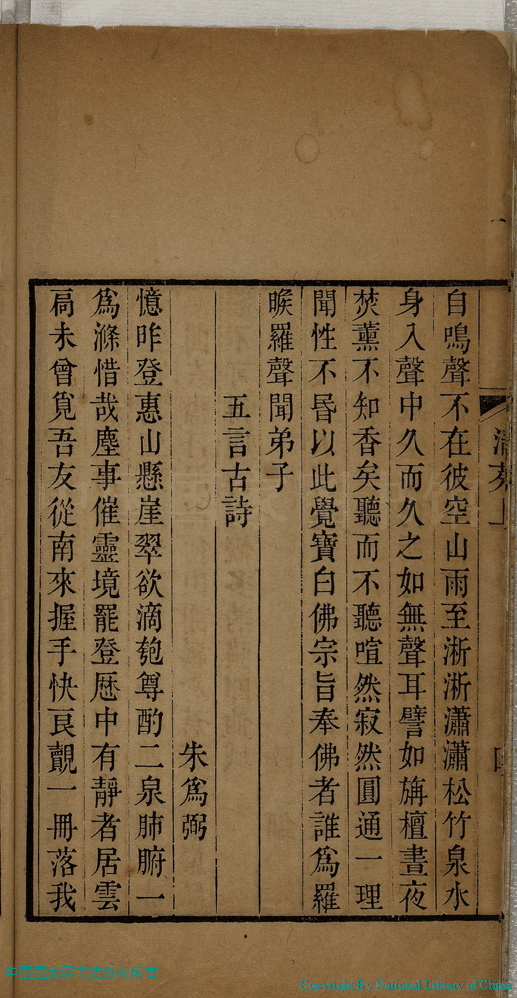 自鳴聲不在彼空山雨至淅淅瀟瀟松竹泉水
身入聲中久而久之如無聲耳譬如旃檀晝夜
焚薰不知香矣聽而不聽喧然寂然圓通一理
聞性不昬以此覺寶白佛宗旨奉佛者誰爲羅
睺羅聲聞弟子
五言古詩
朱爲弼
憶昨登惠山懸崖翠欲滴匏尊酌二泉肺腑一
爲滌惜哉塵事催靈境罷登歷中有靜者居雲
扃未曾覓吾友從南來握手快良覿一冊落我
Copyright By National Library of China